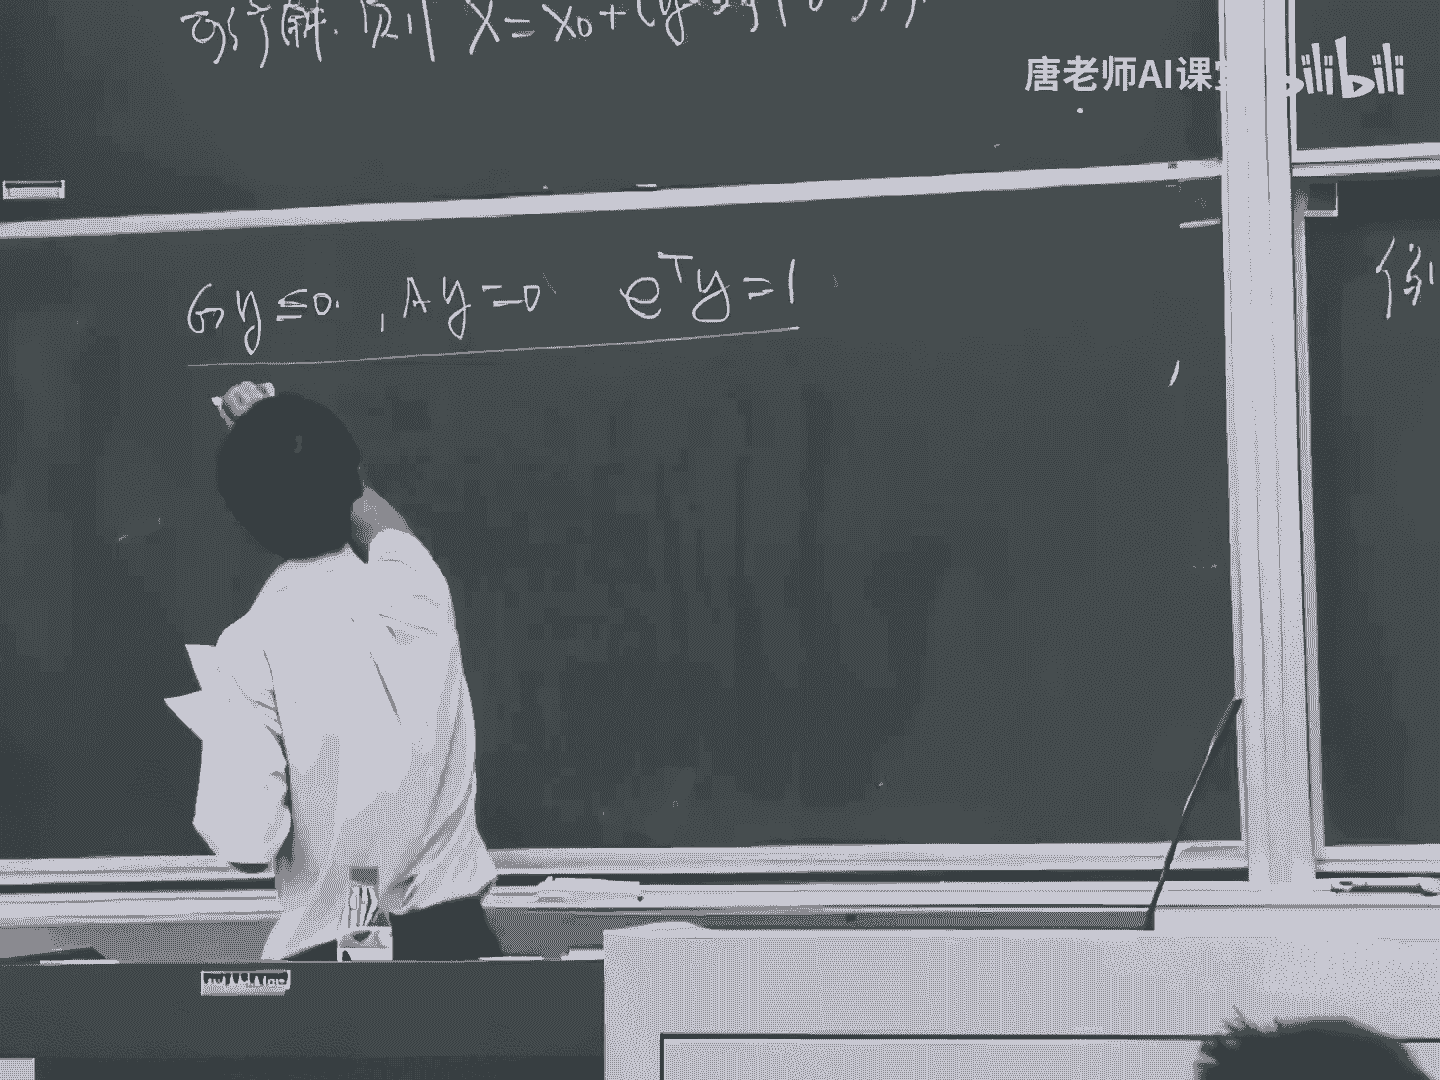 可行解. 则 X = X₀ +
唐老师AI课 bilibili
Gy ≤ 0. , Ay = 0 eᵀy = 1
例